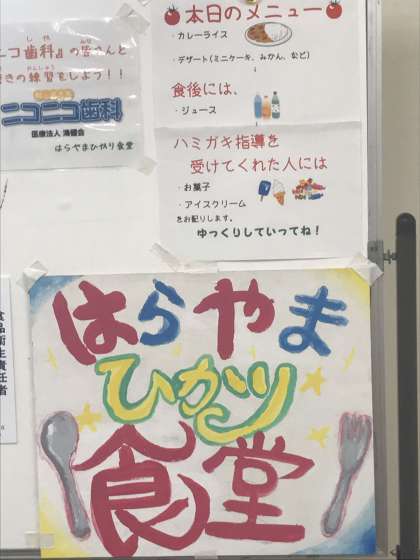 しか
ニコ歯科』の皆さんと
れんしゅう
きの練習をしよう！！
ニコニコ歯科
医療法人 湧碧会
はらやまひかり食堂
本日のメニュー
・カレーライス
・デザート(ミニケーキ、みかん、など)
食後には、
・ジュース
ハミガキ指導を
受けてくれた人には
・お菓子
・アイスクリーム
をお配りします。
ゆっくりしていってね！
食品衛生責任者
はらやま
ひかり
食堂